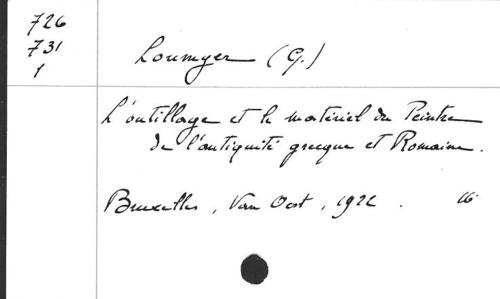 726
731
1
Loumyer (G.)
L'outillage et le matériel du Peintre
de l'antiquité grecque et Romaine.
Bruxelles, Van Oest, 192